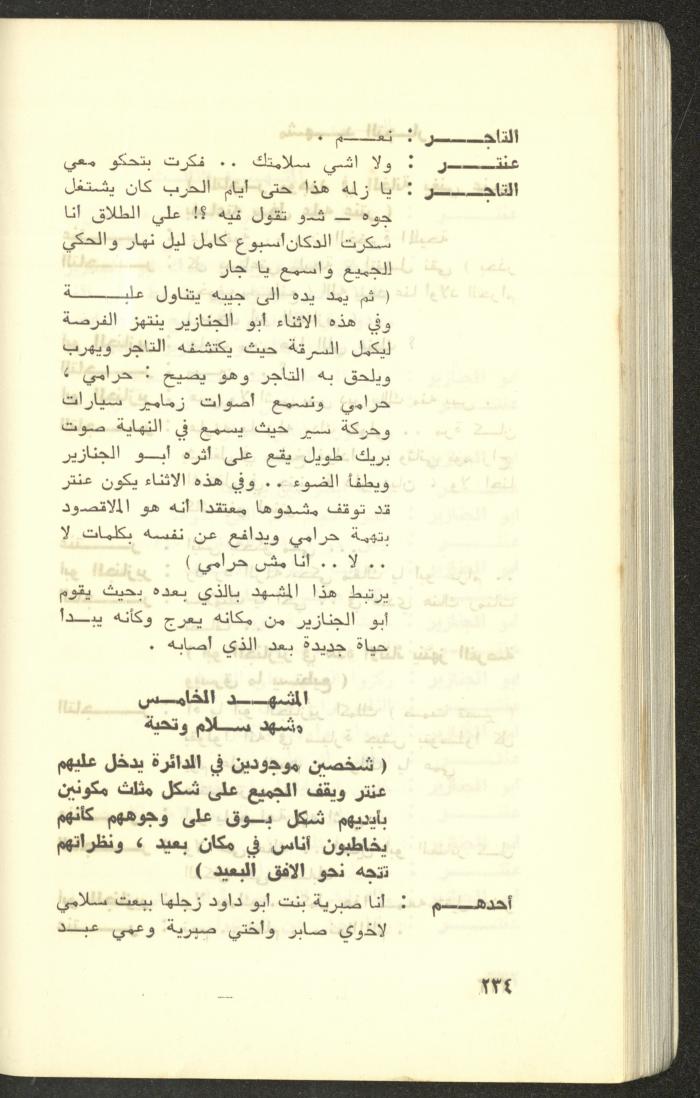 التاجــــــر : نعـــم .
عنتـــــر : ولا اشي سلامتك .. فكرت بتحكو معي
التاجــــــر : يا زلمه هذا حتى أيام الحرب كان يشتغل
جوه ــ شدو تقول فيه ؟! علي الطلاق انا
سكرت الدكان أسبوع كامل ليل نهار والحكي
للجميع واسمع يا جار
( ثم يمد يده الى جيبه يتناول علبـــــة
وفي هذه الاثناء أبو الجنازير ينتهز الفرصة
ليكمل السرقة حيث يكتشفه التاجر ويهرب
ويلحق به التاجر وهو يصيح : حرامي ،
حرامي ونسمع أصوات زمامير سيارات
وحركة سير حيث يسمع في النهاية صوت
بريك طويل يقع على أثره أبــو الجنازير
ويطفأ الضوء .. وفي هذه الاثناء يكون عنتر
قد توقف مشدوها معتقدا أنه هو المقصود
بتهمة حرامي ويدافع عن نفسه بكلمات لا
.. لا .. أنا مش حرامي )
يرتبط هذا المشهد بالذي بعده بحيث يقوم
أبو الجنازير من مكانه يعرج وكأنه يبــدأ
حياة جديدة بعد الذي أصابه .
المشهـــد الخامــس
مشهد ســلام وتحية
( شخصين موجودين في الدائرة يدخل عليهم
عنتر ويقف الجميع على شكل مثلث مكونين
بأيديهم شكل بــوق على وجوههم كأنهم
يخاطبون أناس في مكان بعيد ، ونظراتهم
تتجه نحو الافق البعيد )
أحدهــــم : أنا صبرية بنت ابو داود زجلها ببعت سلامي
لاخوي صابر وأختي صبرية وعمي عبــد
٢٣٤